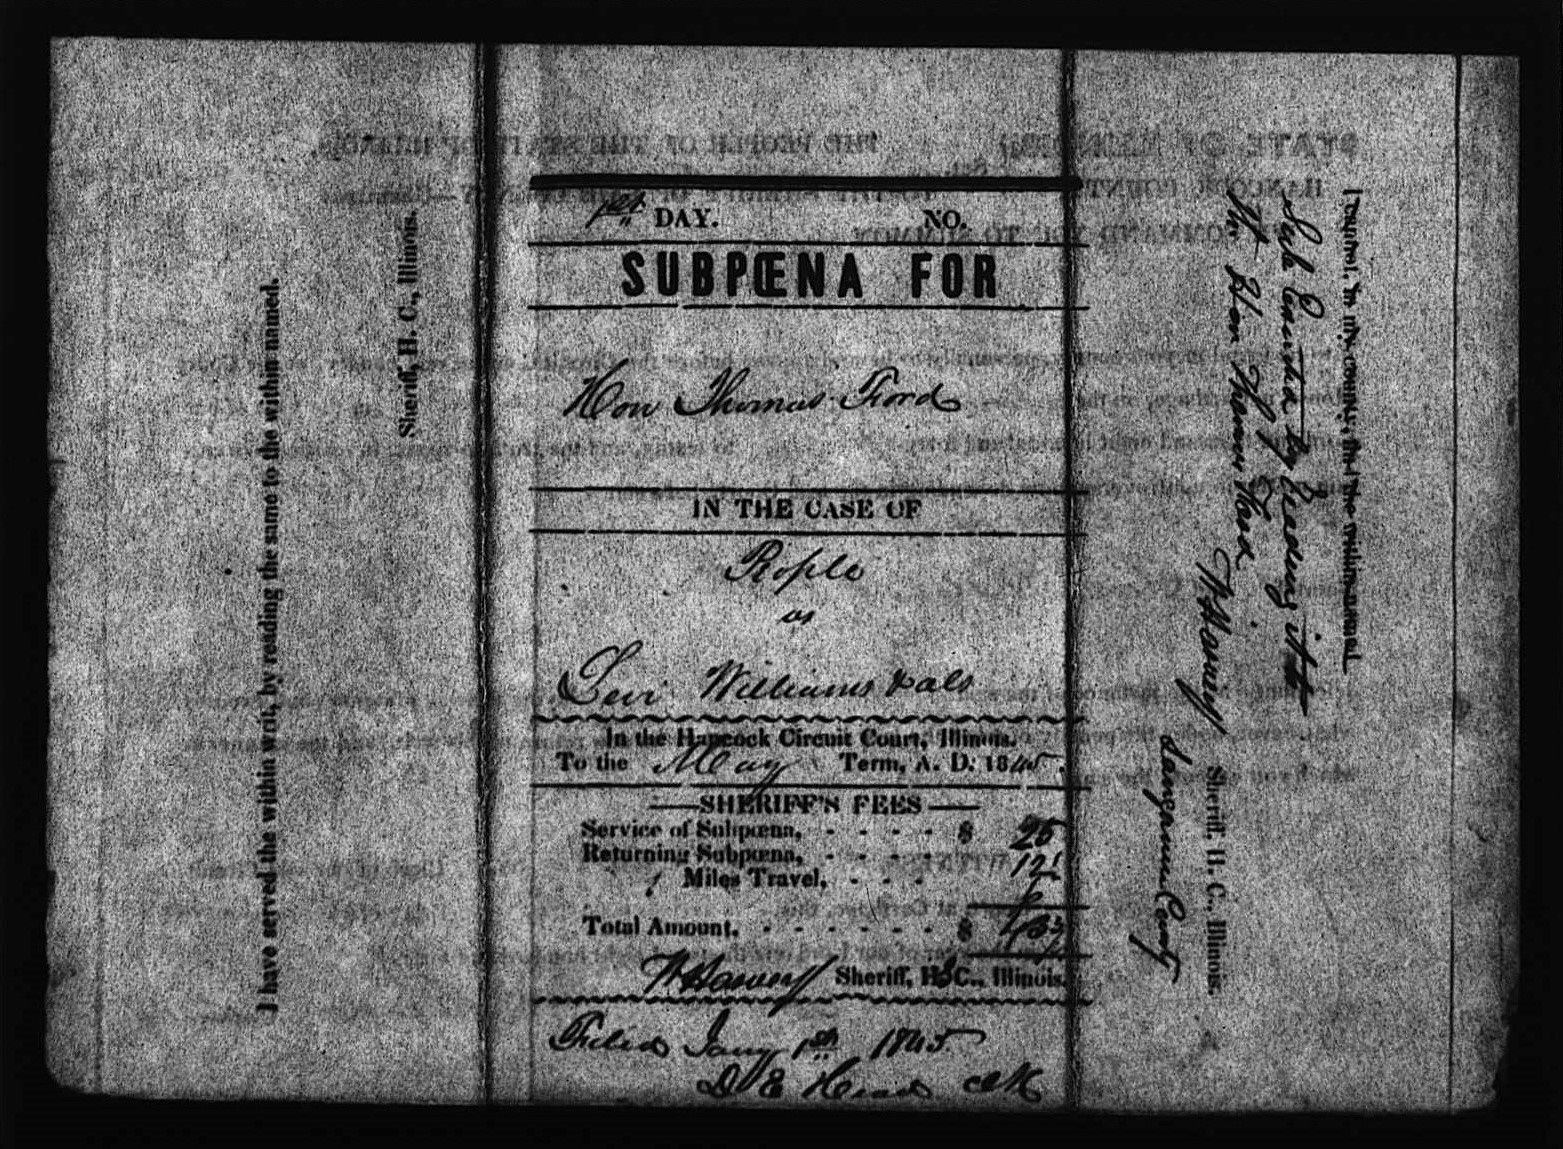 I have served the within writ, by reading the same to the within named.
Sheriff, H. C., Illinois.
1st DAY. NO.
SUBPŒNA FOR
Hon Thomas Ford
IN THE CASE OF
People
vs
Levi Williams & als
In the Hancock Circuit Court, Illinois.
To the May Term, A. D. 1845.
SHERIFF'S FEES
Service of Subpœna, - - - - $ 25
Returning Subpœna, - - - - 12½
Miles Travel, - - -
Total Amount, - - - - - - $
Sheriff, H. C., Illinois.
Filed Jany 1st 1845.
D E Head clk
in my county, the the within named
by reading it to
Hon Thomas Ford
Sheriff, H. C., Illinois.